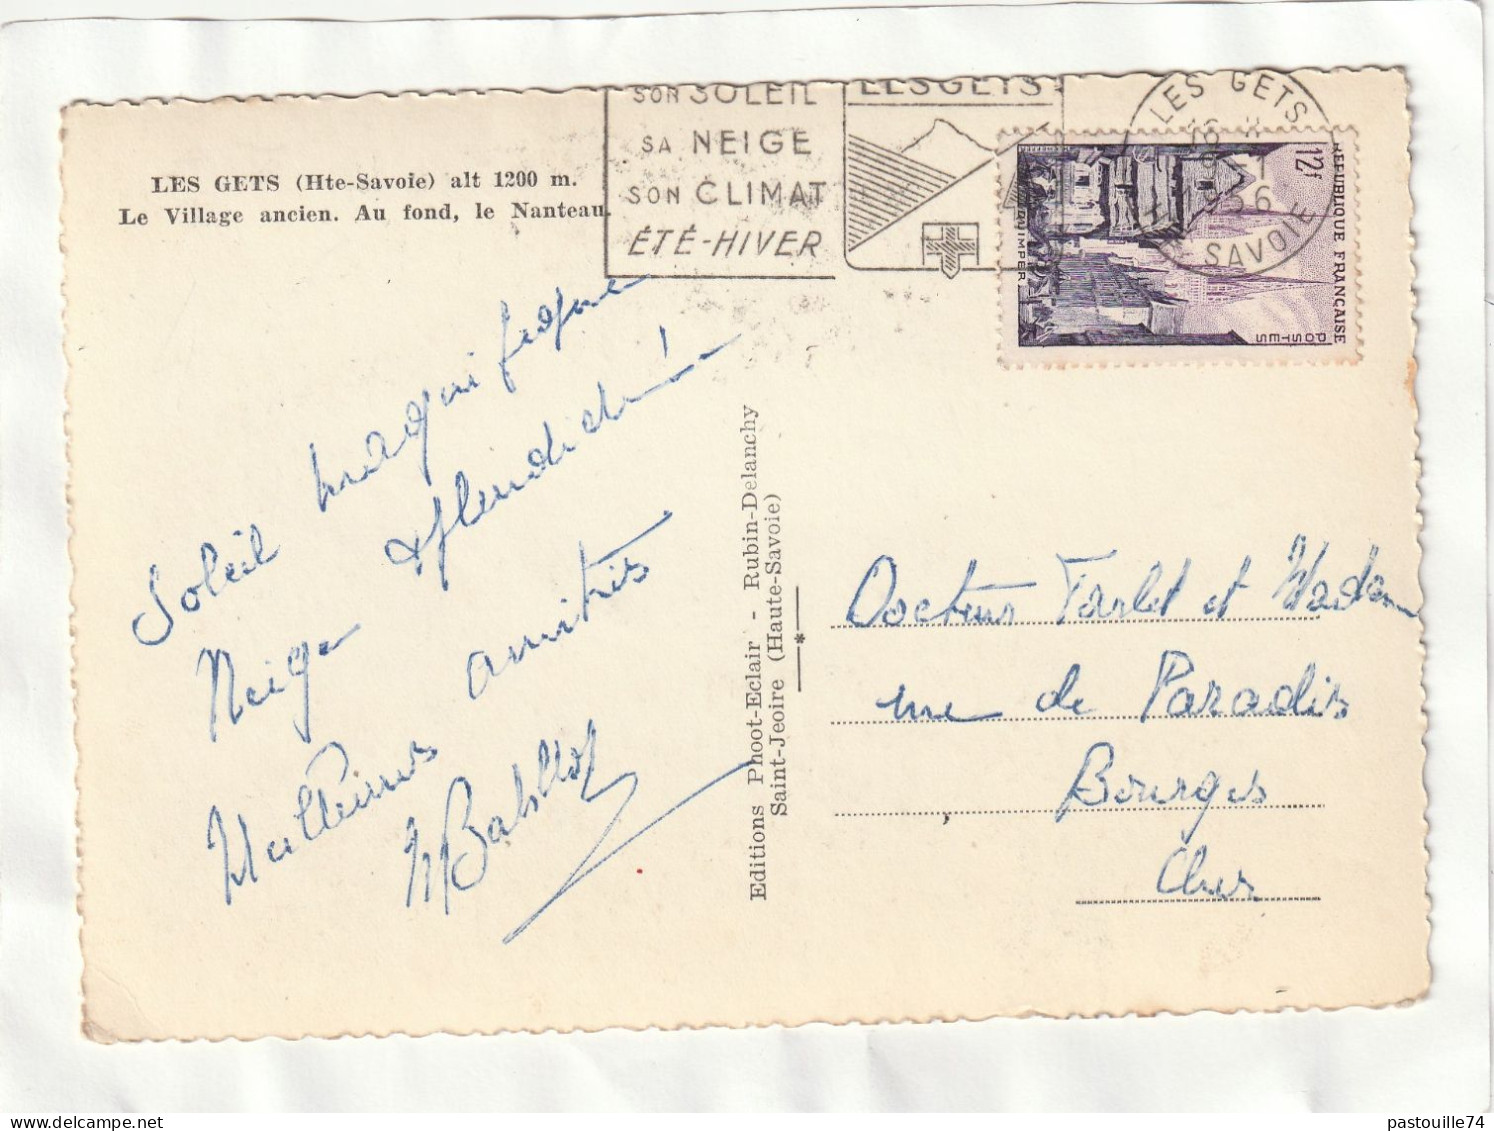 LES GETS (Hte-Savoie) alt 1200 m.
Le Village ancien. Au fond, le Nanteau.
SON SOLEIL
SA NEIGE
SON CLIMAT
ÉTÉ-HIVER
LES GETS
LES GETS
HTE SAVOIE
12F
REPUBLIQUE FRANÇAISE
POSTES
QUIMPER
Soleil magnifique
Neige splendide!
Meilleures amitiés
Editions Phoot-Eclair - Rubin-Delanchy
Saint-Jeoire (Haute-Savoie)
Docteur et Madame
rue de Paradis
Bourges
Cher
pastouille74